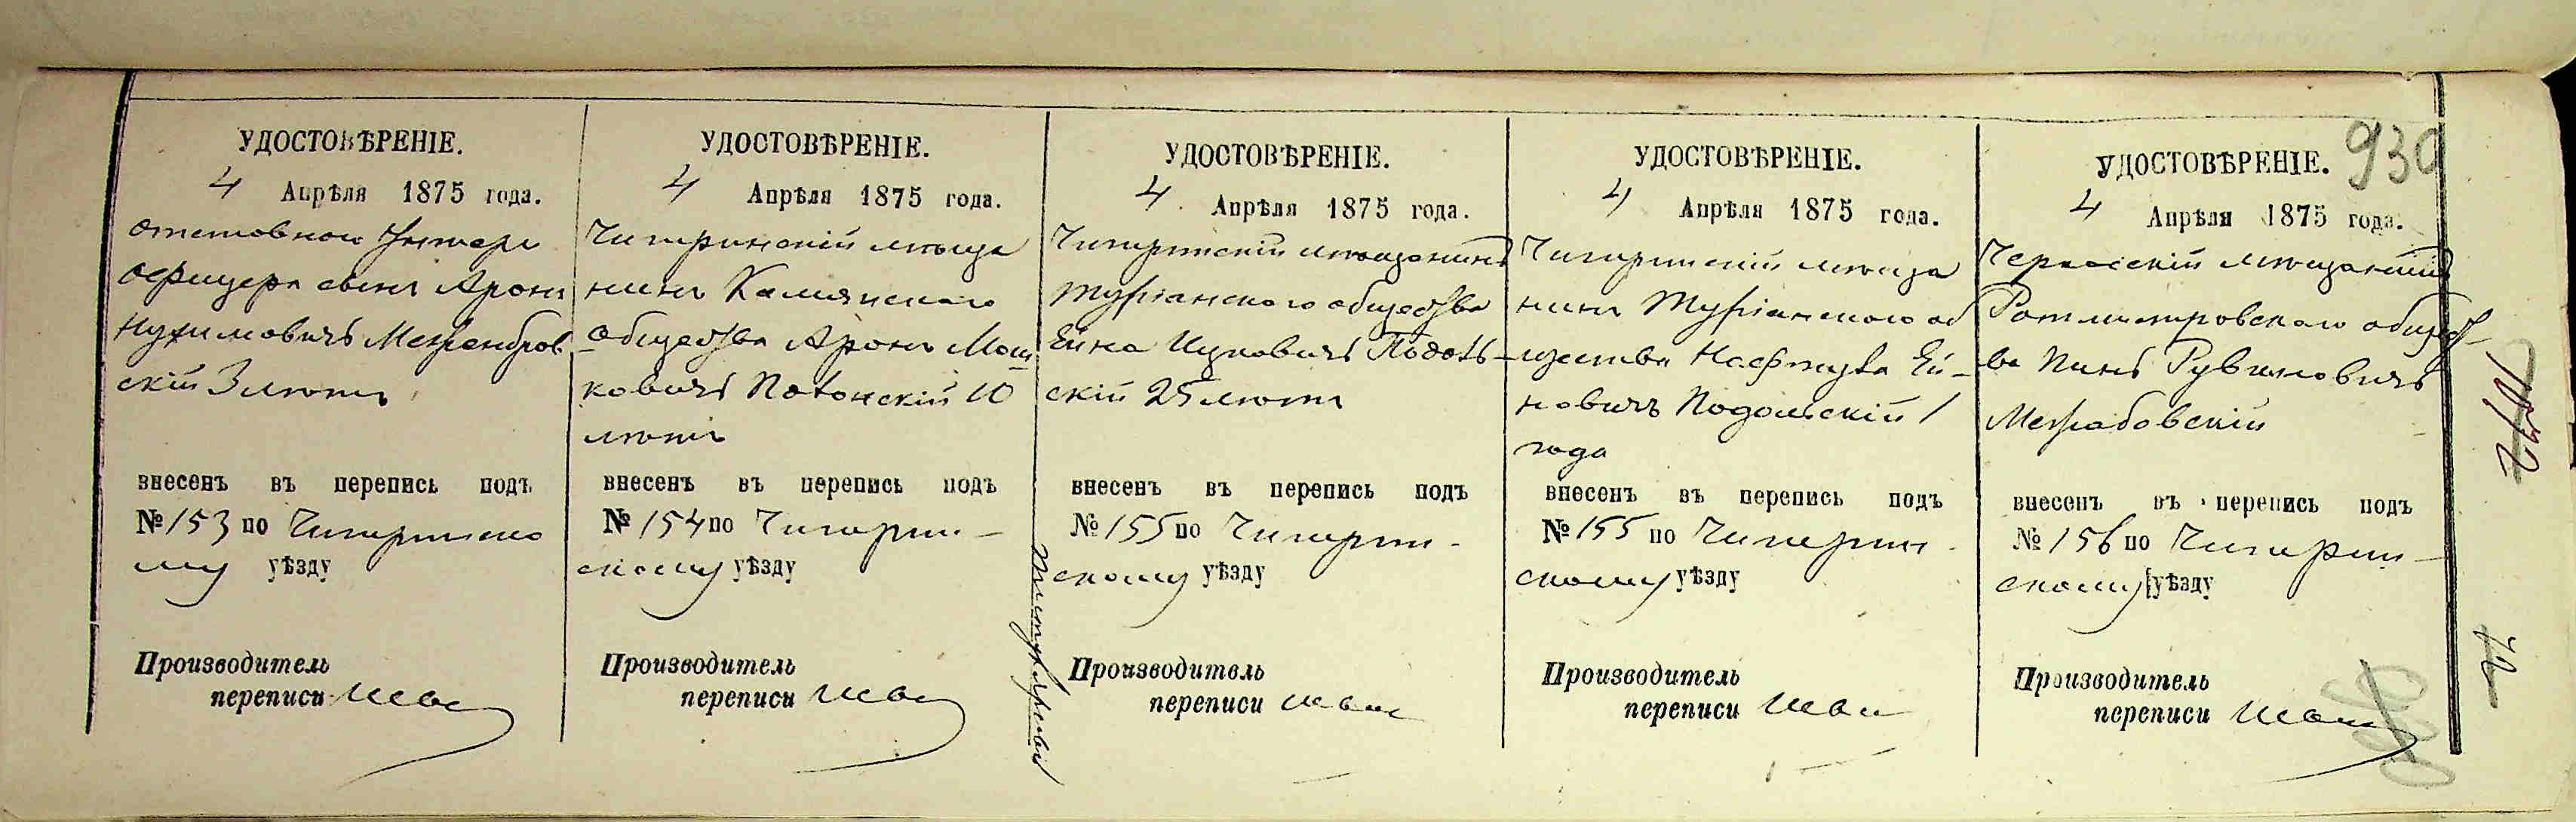 930
УДОСТОВѢРЕНІЕ.
4 Апрѣля 1875 года.
отставного Унтеръ
офицера сынъ Аронъ
Нухимовичъ
скій 3 лѣтъ
внесенъ въ перепись подъ
№ 153 по Чигиринско
му уѣзду
Производитель
переписи
УДОСТОВѢРЕНІЕ.
4 Апрѣля 1875 года.
Чигиринскій мѣща
нинъ Камянского
общества Аронъ Мош
ковичъ 10
лѣтъ
внесенъ въ перепись подъ
№ 154 по Чигирин-
скому уѣзду
Производитель
переписи
УДОСТОВѢРЕНІЕ.
4 Апрѣля 1875 года.
Чигиринскій мѣщанинъ
общества
Ейна Ицковичъ Подоль-
скій 25 лѣтъ
внесенъ въ перепись подъ
№ 155 по Чигирин-
скому уѣзду
Производитель
переписи
УДОСТОВѢРЕНІЕ.
4 Апрѣля 1875 года.
Чигиринскій мѣща
нинъ об
щества Ей-
новичъ Подольскій 1
года
внесенъ въ перепись подъ
№ 155 по Чигирин-
скому уѣзду
Производитель
переписи
УДОСТОВѢРЕНІЕ.
4 Апрѣля 1875 года.
Черкасскій мѣщанинъ
Ротмистровского общест-
ва Пинъ Рувиновичъ
внесенъ въ перепись подъ
№ 156 по Чигирин-
скому уѣзду
Производитель
переписи